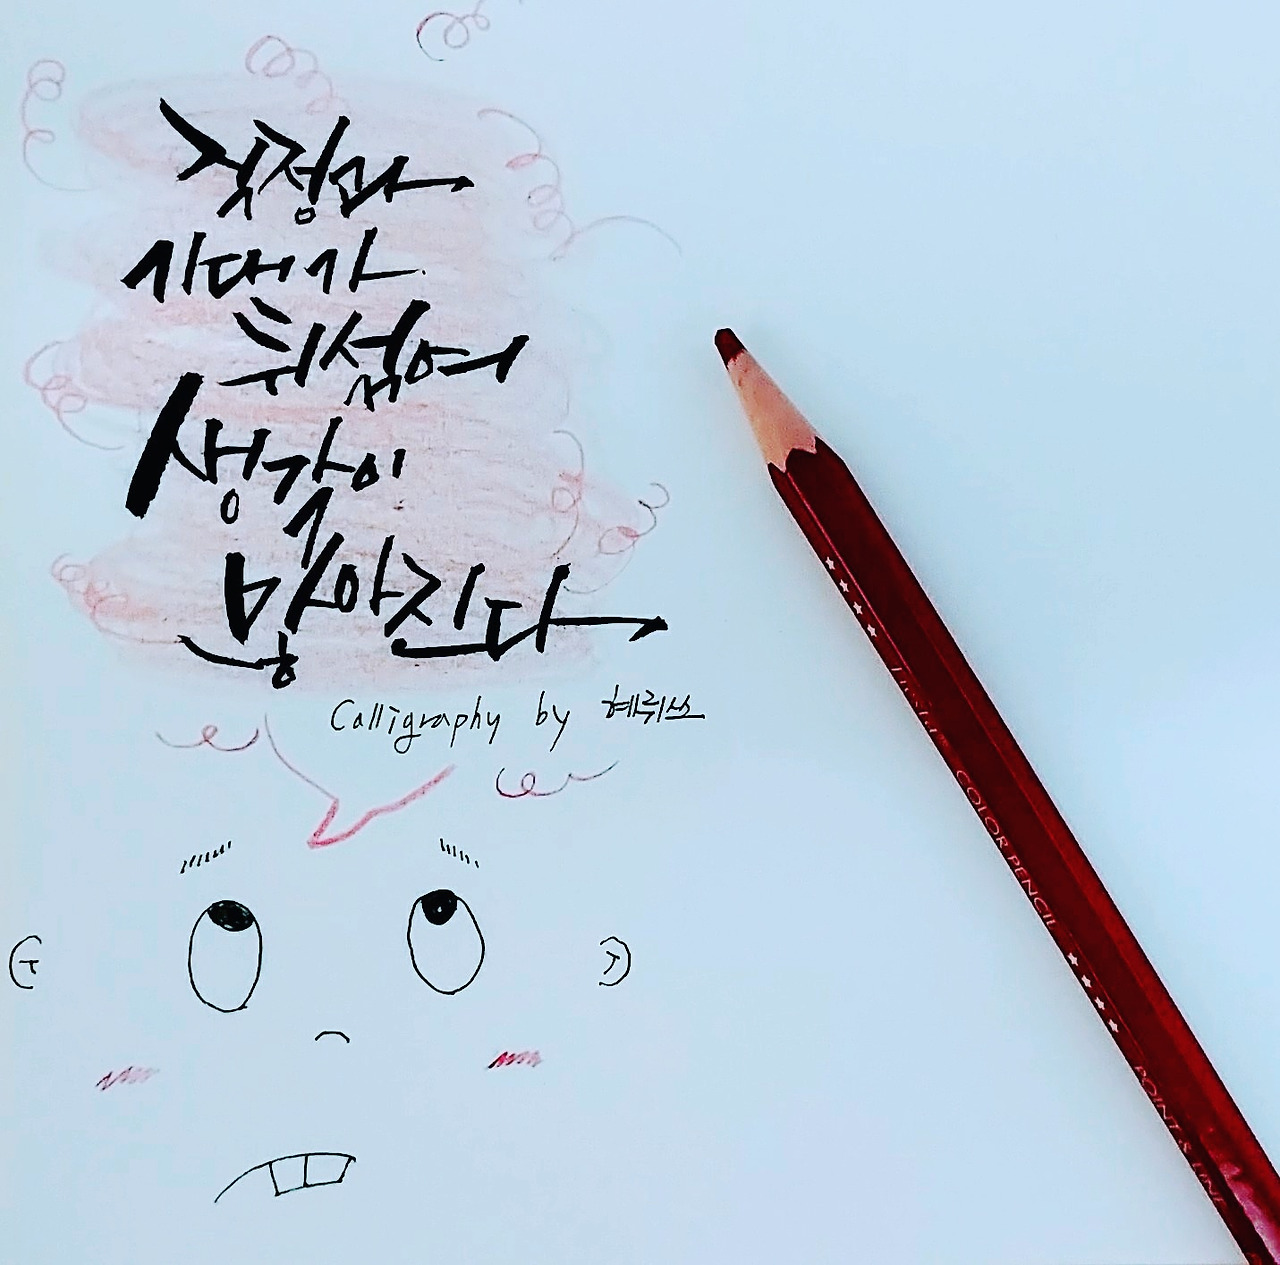 걱정과
기대가
뒤섞여
생각이
많아진다
Calligraphy by 혜뤼쓰
COLOR PENCIL
POINT & LINE